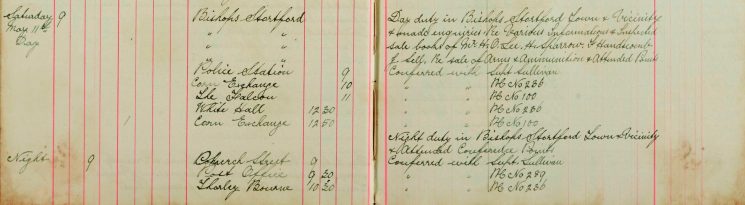 Saturday 9 Bishops Stortford Day duty in Bishops Stortford Town & Vicinity
May 11th " " & made enquiries Re Various Informations & Inspected
Day " " sale books of Mr H.O. Lee, H. Sparrow, F Handscomb
" " F. Self, Re sale of Arms & Ammunition & Attended Points
Police Station 9 Conferred with Supt Sullivan
Corn Exchange 10 " " PC No 236
The Falcon 11 " " PC No 100
White Hall 12 20 " " PC No 236
Corn Exchange 12 50 " " PC No 100
Night duty in Bishops Stortford Town & Vicinity
& Attended Conference Points
Night 9 Church Street 9 Conferred with Supt Sullivan
Post Office 9 30 " " PC No 289
Thorley Bourne 10 30 " " PC No 236